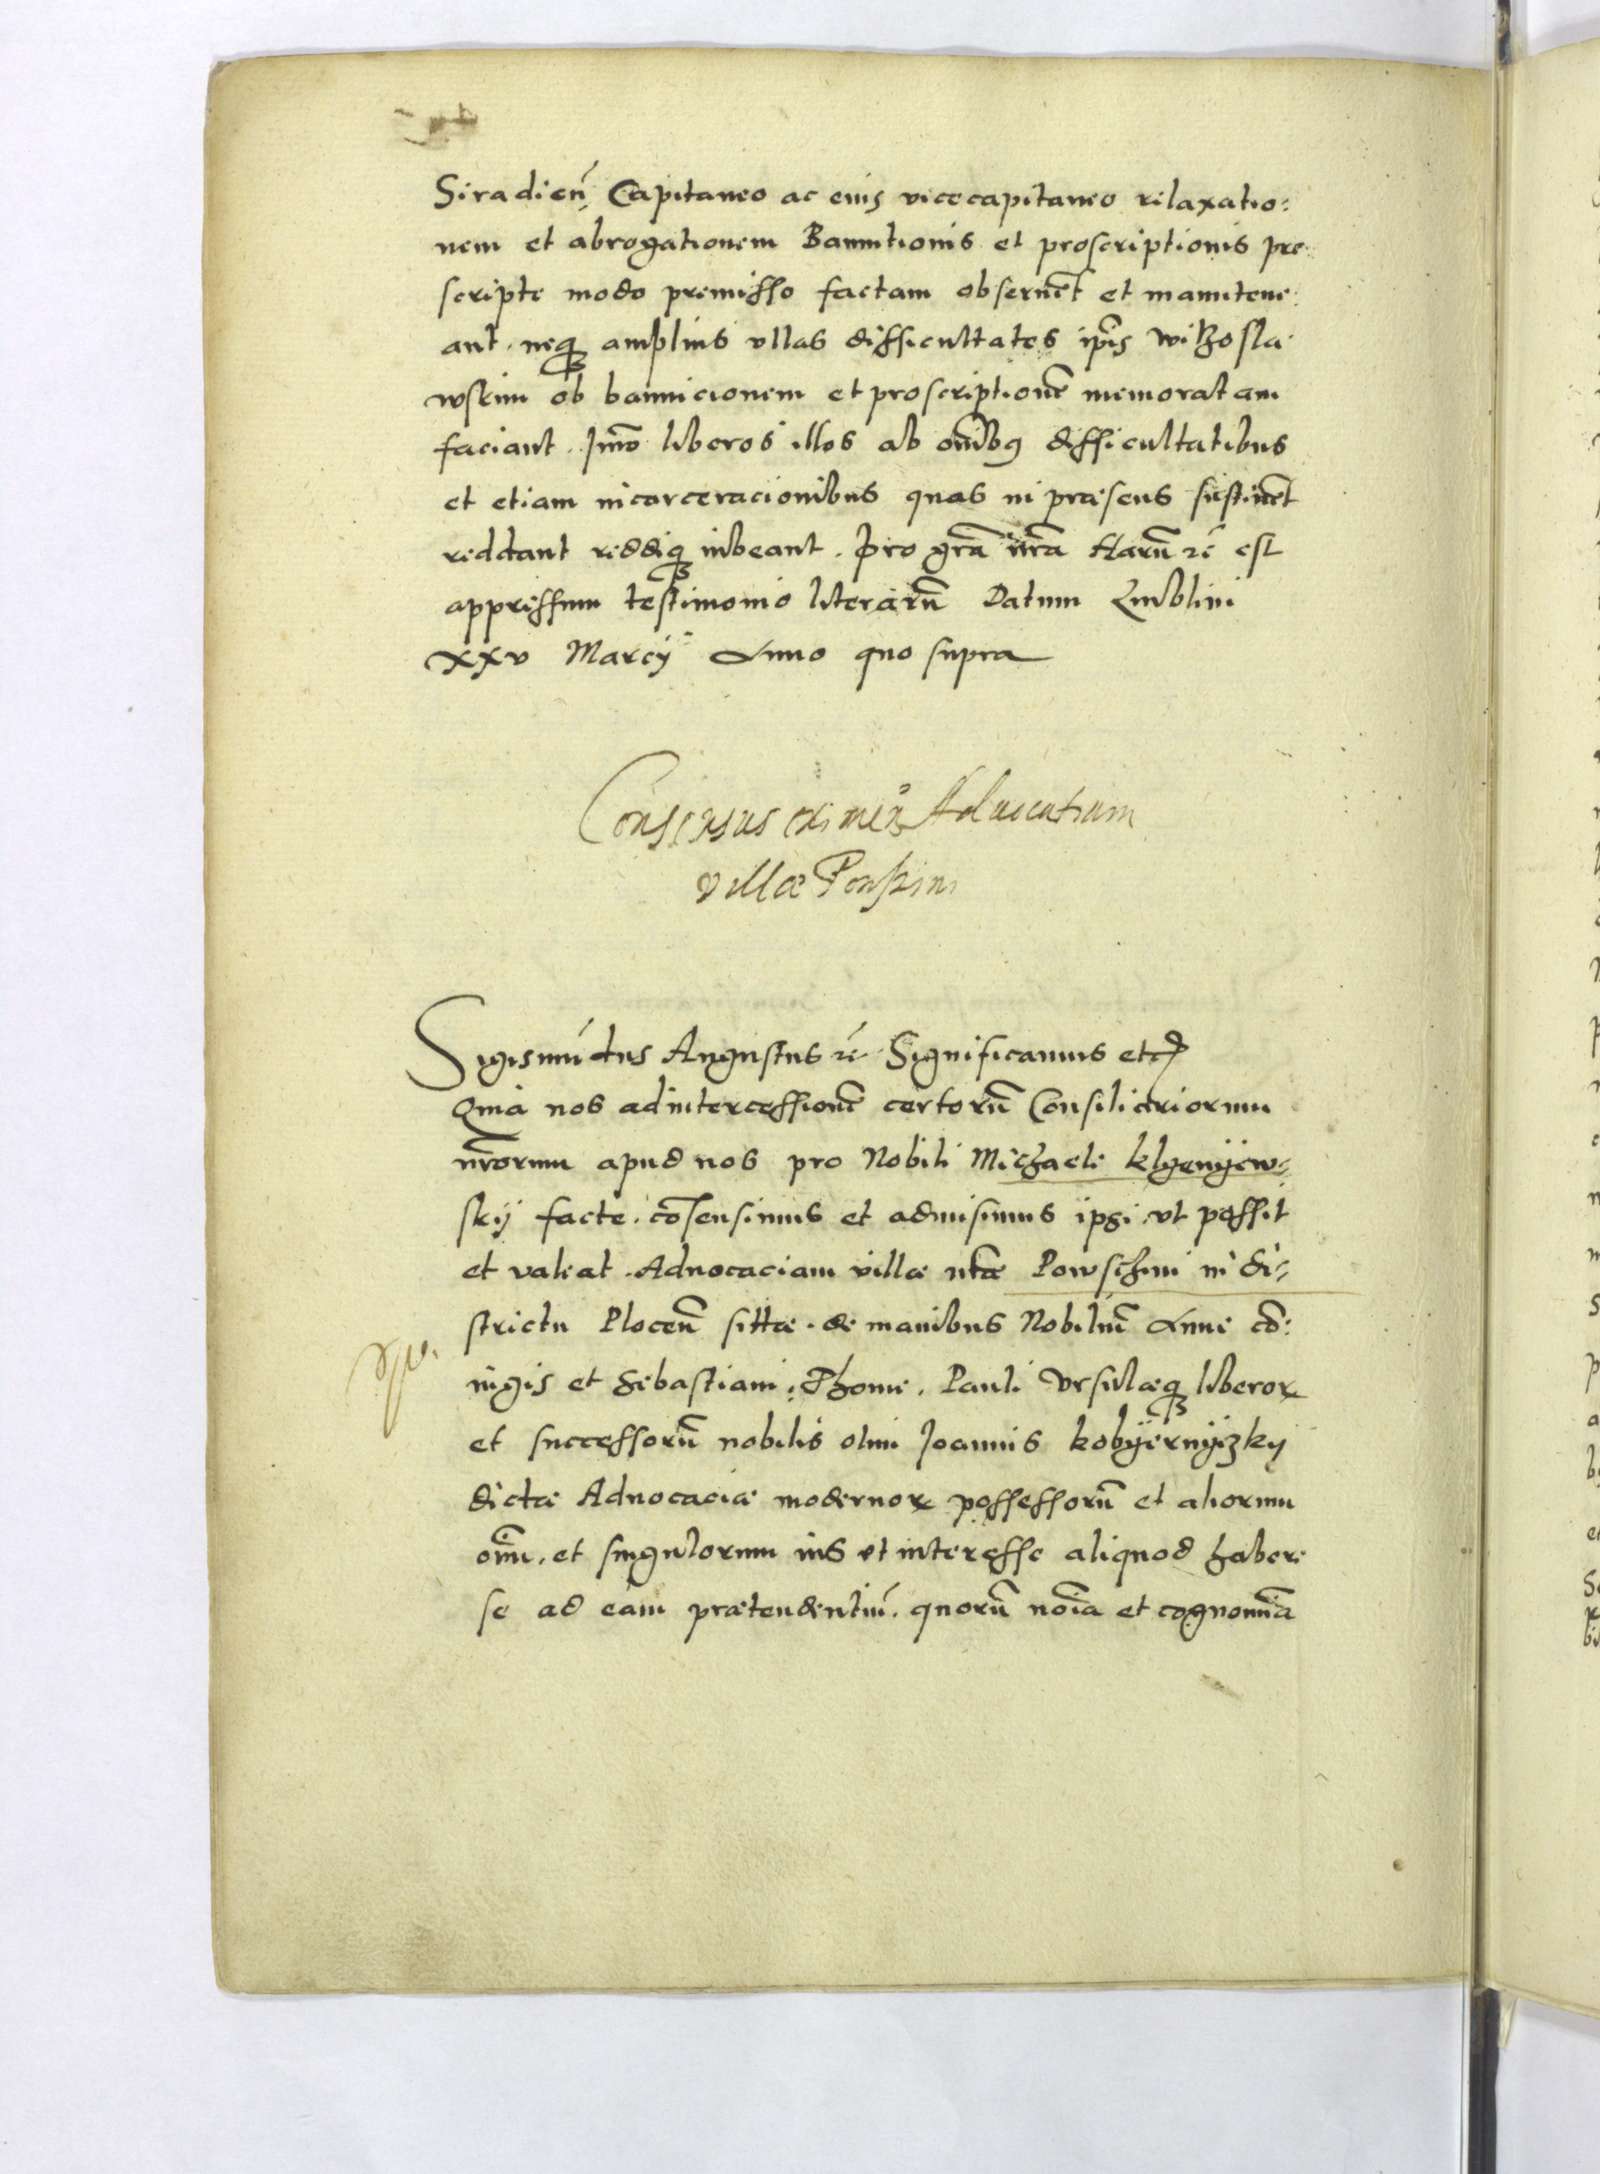 Siradien̄ Capitaneo ac eius vicecapitaneo relaxatio:
nem et abrogationem Bannitionis et proscriptionis pre:
scripte modo premisso factam obseruēt et manutene:
ant. neqȝ amplius vllas difficultates ip̄is Withosla:
wskim ob bannicionem et proscriptionē memoratam
faciant. Im̄o liberos illos ab om̄ibꝰ difficultatibus
et etiam incarceracionibus quas in præsens sustinēt
reddant reddiqȝ iubeant. Pro gr̄a n̄ra Harū zc̄ est
appressum testimonio literarū Datum Lublini
xxv Marcÿ Anno quo supra
Consensus eximen̄ Aduocatiam
villæ Powsin
Sigismūdus Augustus zc̄ Significamus etc
Quia nos ad intercessionē certorū Consiliariorum
nr̄orum apud nos pro Nobili Michaele klyenyew⸗
skÿ facte. cōsensimus et admisimus ipsi vt possit
et valeat. Aduocaciam villæ nr̄æ Powschini in di⸗
strictu Plocen̄ sittæ. de manibus Nobiliū Anne cō:
iugis et Sebastiani. Thome. Pauli Vrsulæqȝ liberoꝝ
et successorū nobilis olim Joannis kobÿernÿzky
dictæ Aduocaciæ modernoꝝ possessorū et aliorum
om̄iu. et singulorum ius et interesse aliquod habere
se ad eam prætendentiū. quorū nōia et cognomīa